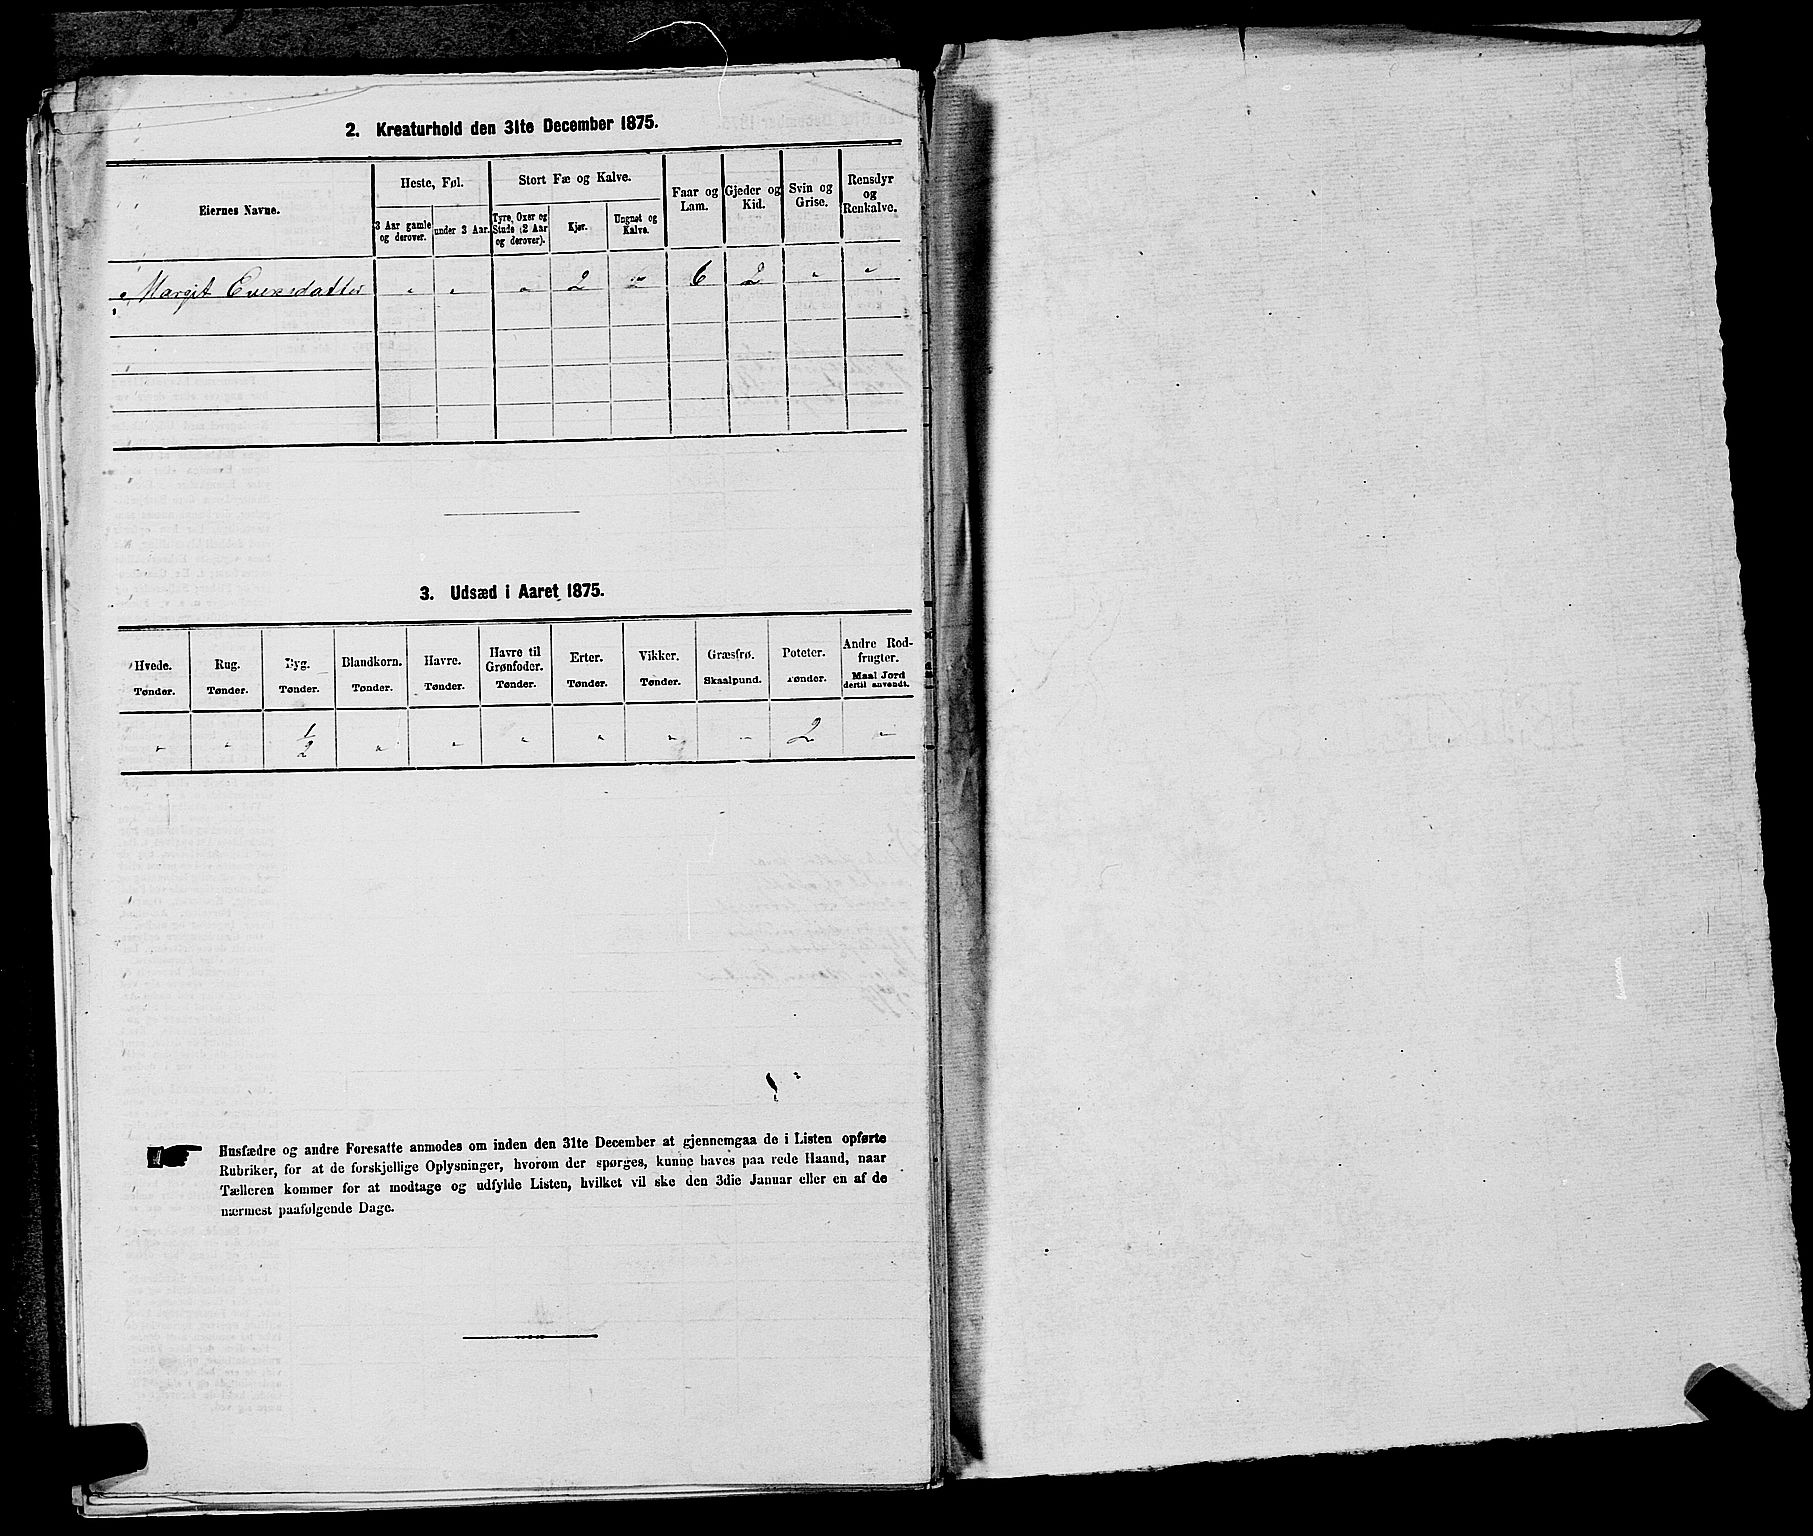 2. Kreaturhold den 31te December 1875.
Eiernes Navne.
Heste, Føl.
Stort Fæ og Kalve.
Faar og
Lam.
Gjeder og
Kid.
Svin og
Grise.
Rensdyr
og
Renkalve.
3 Aar gamle
og derover.
under 3 Aar.
Tyre, Oxer og
Stude (2 Aar
og derover).
Kjør.
Ungnøt og
Kalve.
Margit Evensdatter " " " 2 6 2 " "
3. Udsæd i Aaret 1875.
Hvede.
Tønder.
Rug.
Tønder.
Byg.
Tønder.
Blandkorn.
Tønder.
Havre.
Tønder.
Havre til
Grønfoder.
Tønder.
Erter.
Tønder.
Vikker.
Tønder.
Græsfrø.
Skaalpund.
Poteter.
Tønder.
Andre Rod-
frugter.
Maal Jord
dertil anvendt.
" " 1/2 " " " " " " 2 "
Husfædre og andre Foresatte anmodes om inden den 31te December at gjennemgaa de i Listen opførte
Rubriker, for at de forskjellige Oplysninger, hvorom der spørges, kunne haves paa rede Haand, naar
Tælleren kommer for at modtage og udfylde Listen, hvilket vil ske den 3die Januar eller en af de
nærmest paafølgende Dage.